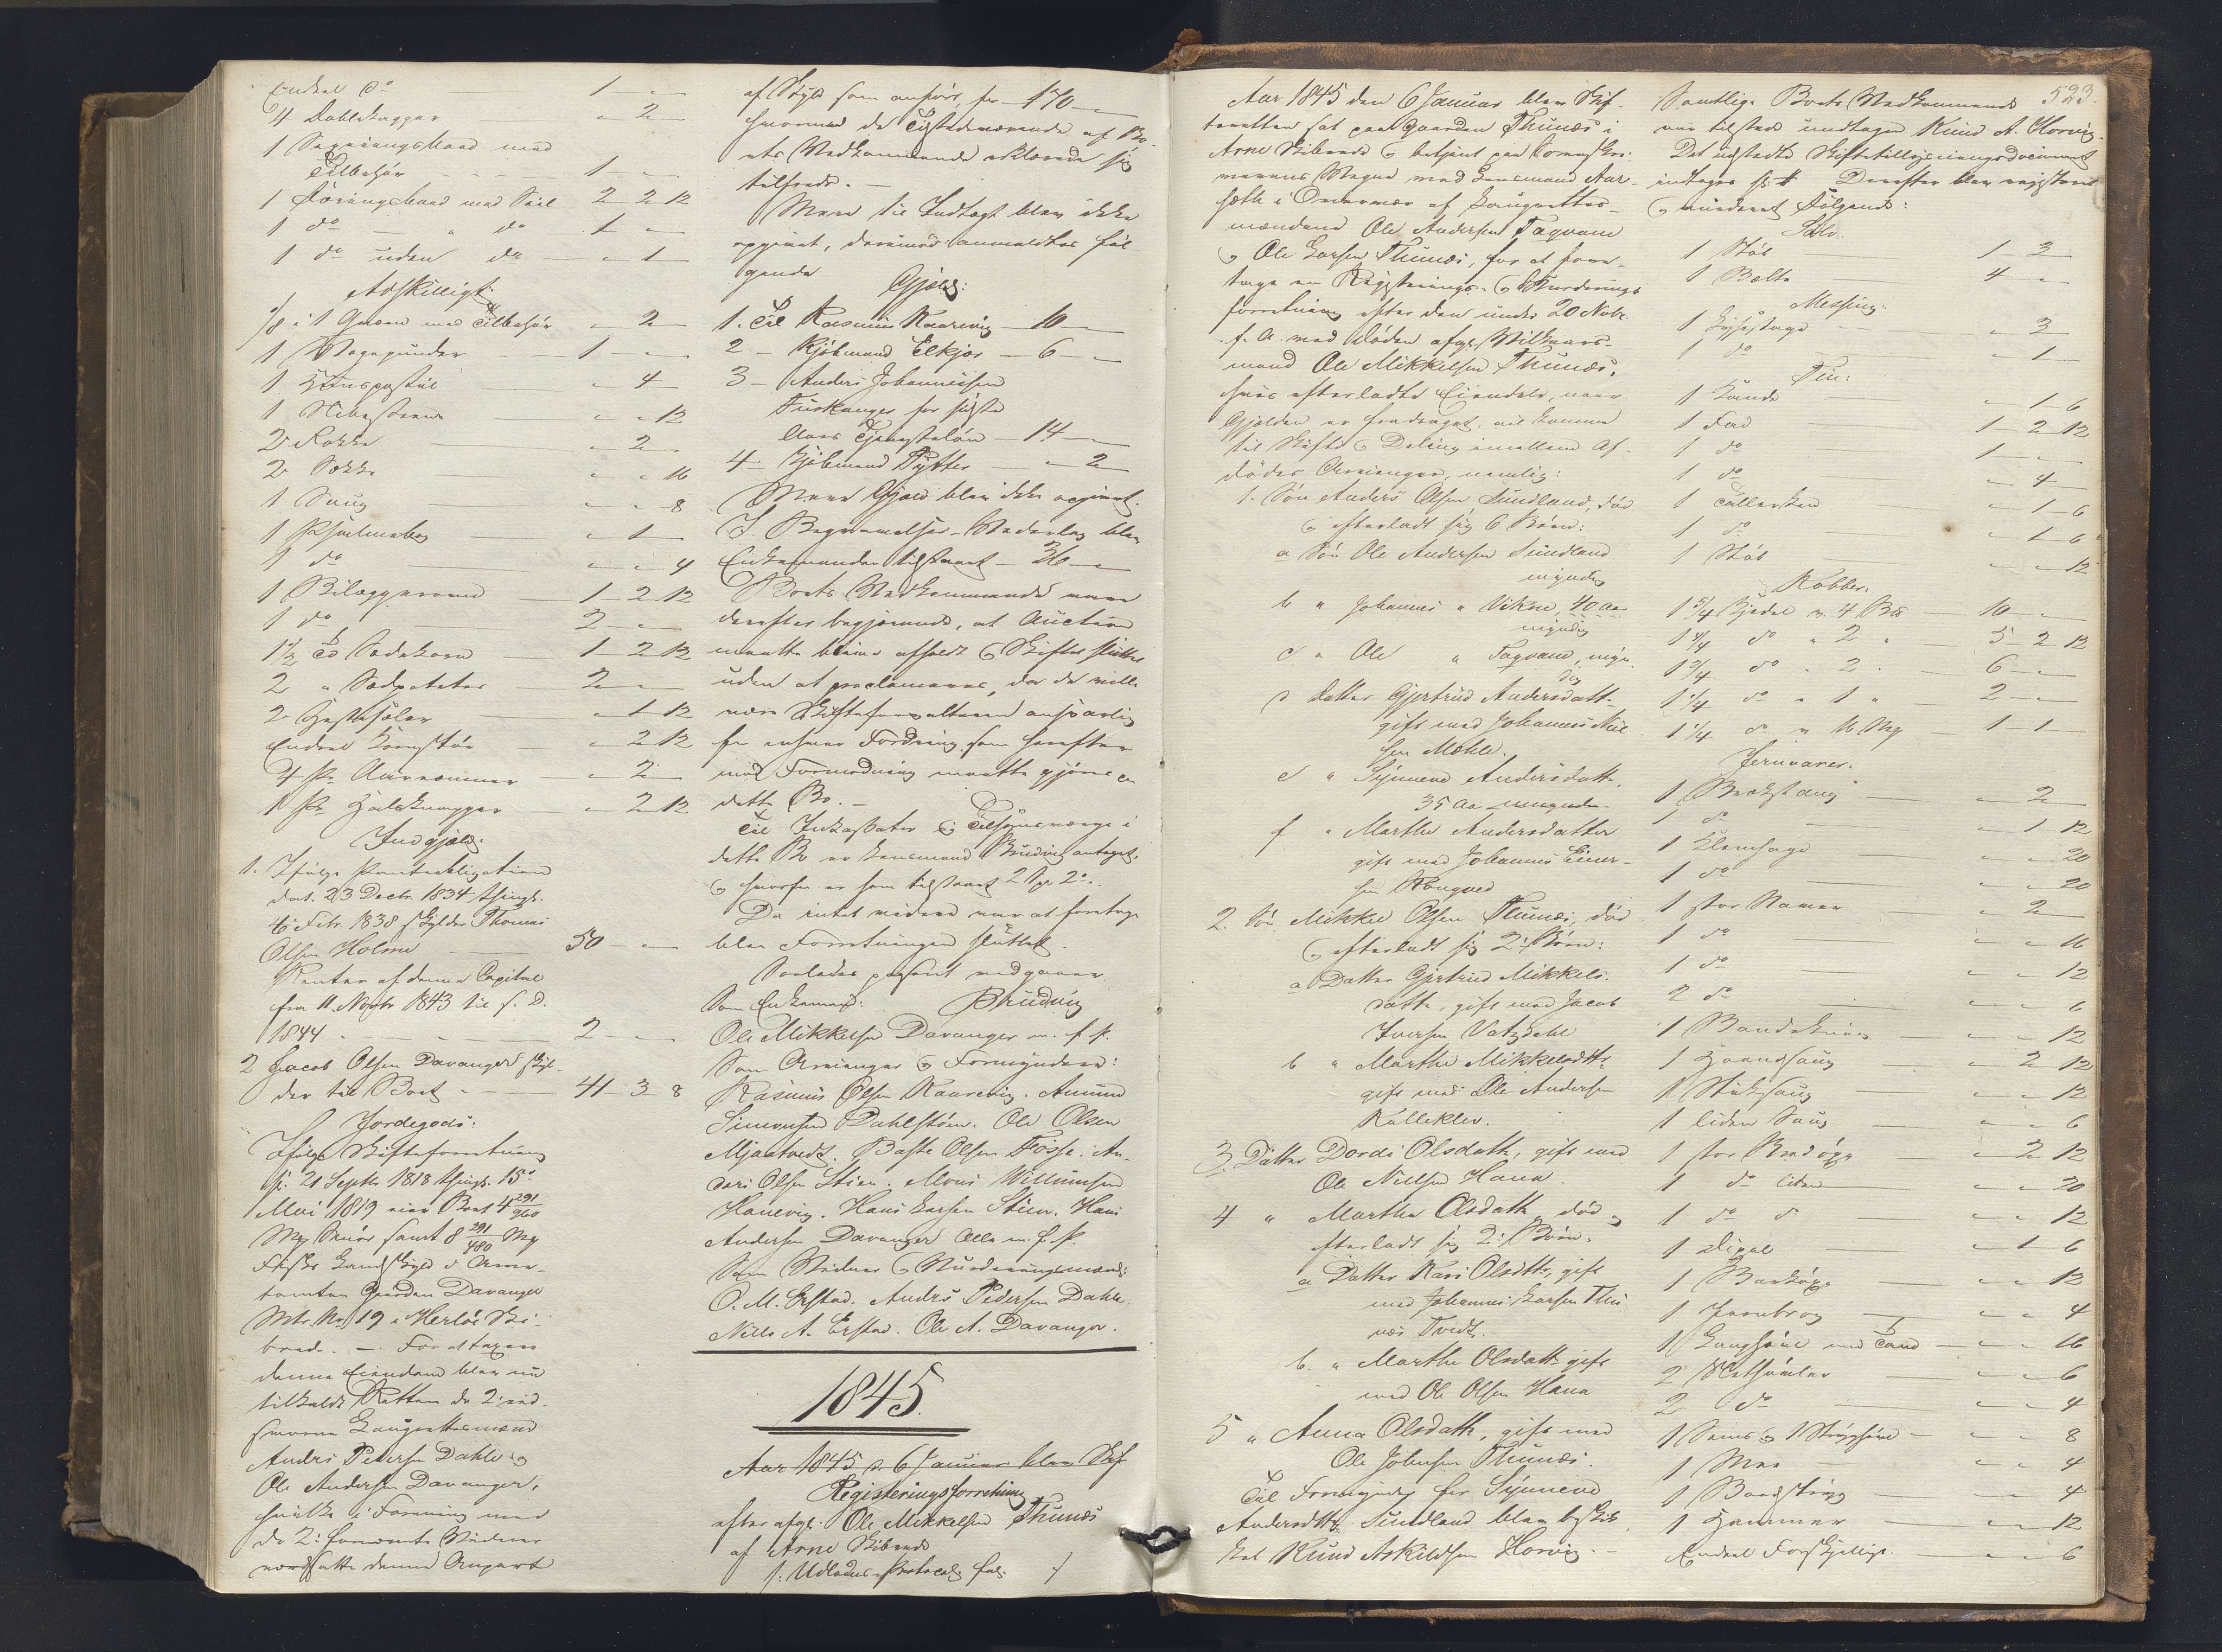 Endeel do 1 - -
4 Dobbelknapper - 2 -
1 Sognings Baad med
Tilbehør 1 - -
1 Føringsbaad med Seil 2 - 2 - 12
1 do - " do 1 - -
1 do uden do - 1 -
Adskilligt:
i 1 Qværn med Tilbehør - 2 -
1 Vægepunder 1 - -
1 - 4 -
1 Slibesteen - - 12
2 Rokke - 2 -
2 Sække - - 16
1 Saug - - 8
1 Psalmebog - 1 -
1 do - - 4
1 Bilæggerovn 1 - 2 - 12
1 do 2 - -
1½ Td Sædekorn 1 - 2 - 12
2 " Sædpoteter 2 - -
2 Hestesæler - 1 - 12
Endeel Kornstør - 2 - 12
4 Pr Aareemner - 2 -
1 Pr Halsknapper - 2 - 12
Indgjæld:
1. Ifølge Panteobligation
dat. 23 Decbr. 1834 thingl.
6 Febr. 1838 skylder Thomas
Olsen Holme 50 - -
Renter af denne Capital
fra 11 Novbr 1843 til s. D.
1844 2 - -
2 Jacob Olsen Davanger skyl-
der til Boet 41 - 3 - 8
Jordegods:
Ifølge Skifteforretning
fr. 21 Septbr 1818 thingl. 15de
Mai 1819 eier Boet 4 291/960
Mrk Smør samt 8 291/480 Mrk
Fiske Landskyld i Arve-
tomten Gaarden Davanger
Mtr. No 19 i Herlø Ski-
brede. - For at taxere
denne Eiendom blev nu
tilkaldt Retten de 2de ed-
svorne Laugrettesmænd
Anders Pedersen Dahle og
Ole Andersen Davanger,
hvilke i Forening med
de 2de forrænte Vidner
værdsatte denne Anpart
af Skyld som anført for 170 - -
hvormed de Tilstedeværende af Bo-
ets Vedkommende erklærede sig
tilfreds. -
Mere til Indtægt blev ikke
opgivet, derimod anmeldtes føl-
gende Gjæld:
1. Til Rasmus Kaarevig 10 - -
2 - Kjøbmand Elkjær 6 - -
3 - Anders Johannessen
Turkanger for sidste
Aars Tjenesteløn 14 - -
4 - Kjøbmand Pytter - 2 -
Mere Gjæld blev ikke opgivet.
I Begravelses-Vederlag blev
Enkemanden tilstaaet 36 - -
Boets Vedkommende vare
derefter begjærende, at Auction
maatte blive afholdt og Skiftet sluttet
uden at proclameres, da de ville
være Skifteforvalteren ansvarlig
for enhver Fordring som herefter
mod Formodning maatte gjøres i
dette Bo. -
Til Inkassator og Tilsynsværge i
dette Bo er Lensmand Brudvig antaget,
og hvorfor er ham tilstaaet 2 Spd 2 .
Da intet videre var at foretage
blev Forretningen sluttet.
Saaledes passeret vedgaaes
Som Enkemand: Brudvig
Ole Mikkelsen Davanger m. f. P.
Som Arvinger og Formyndere:
Rasmus Olsen Kaarevig. Amund
Simensen Dahlstøen. Ole Olsen
Mjaatvedt. Baste Olsen Fosse. An-
ders Olsen Stien. Mons Willumsen
Hanevig. Hans Larsen Stien. Hans
Andersen Davanger Alle m. f. P.
Som Vidner og Vurderingsmænd:
O. M. Erstad. Anders Pedersen Dahle.
Nills A. Erstad. Ole A. Davanger.
1845.
Aar 1845 d. 6 Januar blev Skif
Registeringsforretning
efter afg. Ole Mikkelsen Thunæs
af Arne Skibrede
f: Udlodnr. Protocol fol: /
523.
Aar 1845 den 6 Januar blev Skif-
teretten sat paa Gaarden Thunæs i
Arne Skibrede og betjent paa Sorenskri-
verens Vegne med Lensmand Aar-
sæth i Overvær af Laugrettes-
mændene Ole Andersen Tagvam
og Ole Larsen Thunæs, for at fore-
tage en Registerings- og Vurderings
forretning efter den under 20 Novbr
f. A. ved Døden afg. Vilkaars-
mand Ole Mikkelsen Thunæs,
hvis efterladte Eiendele, naar
Gjælden er fradraget, vil komme
til Skifte og Deling imellem Af-
dødes Arvinger, nemlig:
1. Søn Anders Olsen Sundland, død
og efterladt sig 6 Børn:
a Søn Ole Andersen Sundland
myndig
b " Johannes " Vikne, 40 Aar
myndig
c " Ole " Tagvam, myn
dig
d Datter Gjertrud Andersdatt.
gift med Johannes Niel
sen Mæhle.
e " Synneve Andersdatt.
35 Aar
f " Marthe Andersdatter
gift med Johannes Einer-
sen Rongved
2. Søn Mikkel Olsen Thunæs, død
og efterladt sig 2de Børn:
a Datter Gjertrud Mikkels-
datt, gift med Jacob
Iversen Vatzdahl
b " Marthe Mikkelsdttr.
gift med Ole Andersen
Kalleklev.
3. Datter Dordi Olsdatt, gift med
Ole Nielsen Hana.
4 " Marthe Olsdatt, død og
efterladt sig 2de Børn.
a Datter Kari Olsdttr, gift
med Johannes Larsen Thu
næs Tvedt.
b. " Marthe Olsdatt gift
med Ole Olsen Hana
5 " Anna Olsdatt, gift med
Ole Johnsen Thunæs.
Til Formynder for Synneve
Andersdttr. Sundland blev beskik
ket Knud Askildsen Horvig. -
Samtlige Boets Vedkommende
var tilstede undtagen Knud A. Horvig.
Det udstedte Skiftetilsigelsesdocument
indtages sub # Derefter blev registeret
og vurderet Følgende:
Sølv.
1 Støb 1 - 3 -
1 Belte 4 - -
Messing.
1 Lysestage - 3 -
1 do - 1 -
Tin:
1 Kande - 1 - 6
1 Fad 1 - 2 - 12
1 do 1 - -
1 do - 4 -
1 Tallerken - 1 - 6
1 do - 1 - 6
1 Støb - - 12
Kobber.
1 5/4 Kjedel v. 4 Bd 10 - -
1 4/4 do " 2 " 5 - 2 - 12
1 2/4 do " 2 " 6 - -
1 1/4 do " 1 " 2 - -
1 1/4 do " 16 Mrk 1 - 1 -
Jernvarer.
1 Brækstang - 2 -
1 do - 1 - 12
1 Klemsage - - 20
1 do - - 20
1 stor Naver - 2 -
1 do - - 16
1 do - - 12
2 do - - 6
1 Baandekniv - - 12
1 Haandsaug - 2 - 12
1 Stiksaug - - 12
1 liden Saug - - 6
1 stor Bredøxe - 2 - 12
1 do liden - - 20
1 do d - - 12
1 Dixel - 1 - 6
1 Baatøxe - - 12
1 - - 4
1 Langhøvl med Tand - - 16
2 Sletthøvler - - 6
2 do - - 4
1 Sims og 1 Strygehøvl - - 8
1 - - 4
1 - - 4
1 Hammer - - 12
Endeel Forskjelligt - - 6